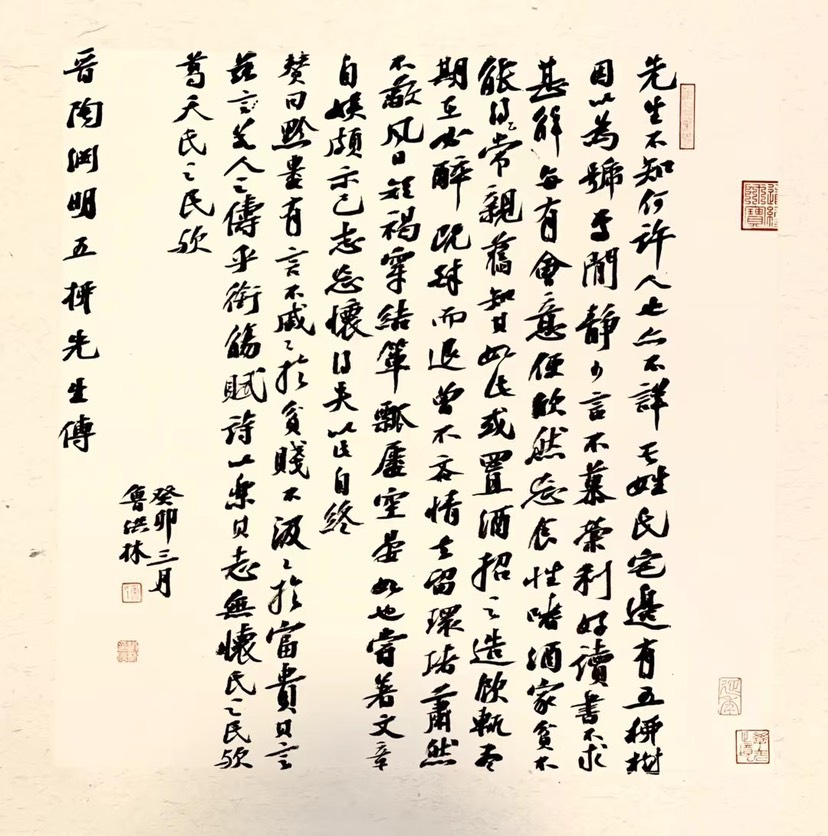 先生不知何許人也亦不詳其姓氏宅邊有五柳樹
因以為號焉閒靜少言不慕榮利好讀書不求
甚解每有會意便欣然忘食性嗜酒家貧不
能得常親舊知其如此或置酒招之造飲輒盡
期在必醉既醉而退曾不吝情去留環堵蕭然
不蔽風日短褐穿結簞瓢屢空晏如也嘗著文章
自娛頗示己志忘懷得失以此自終
贊曰黔婁有言不戚々於貧賤不汲々於富貴其言
茲言若人之儔乎銜觴賦詩以樂其志無懷氏之民歟
葛天氏之民歟
癸卯三月
魯洪林
晉陶淵明五柳先生傳